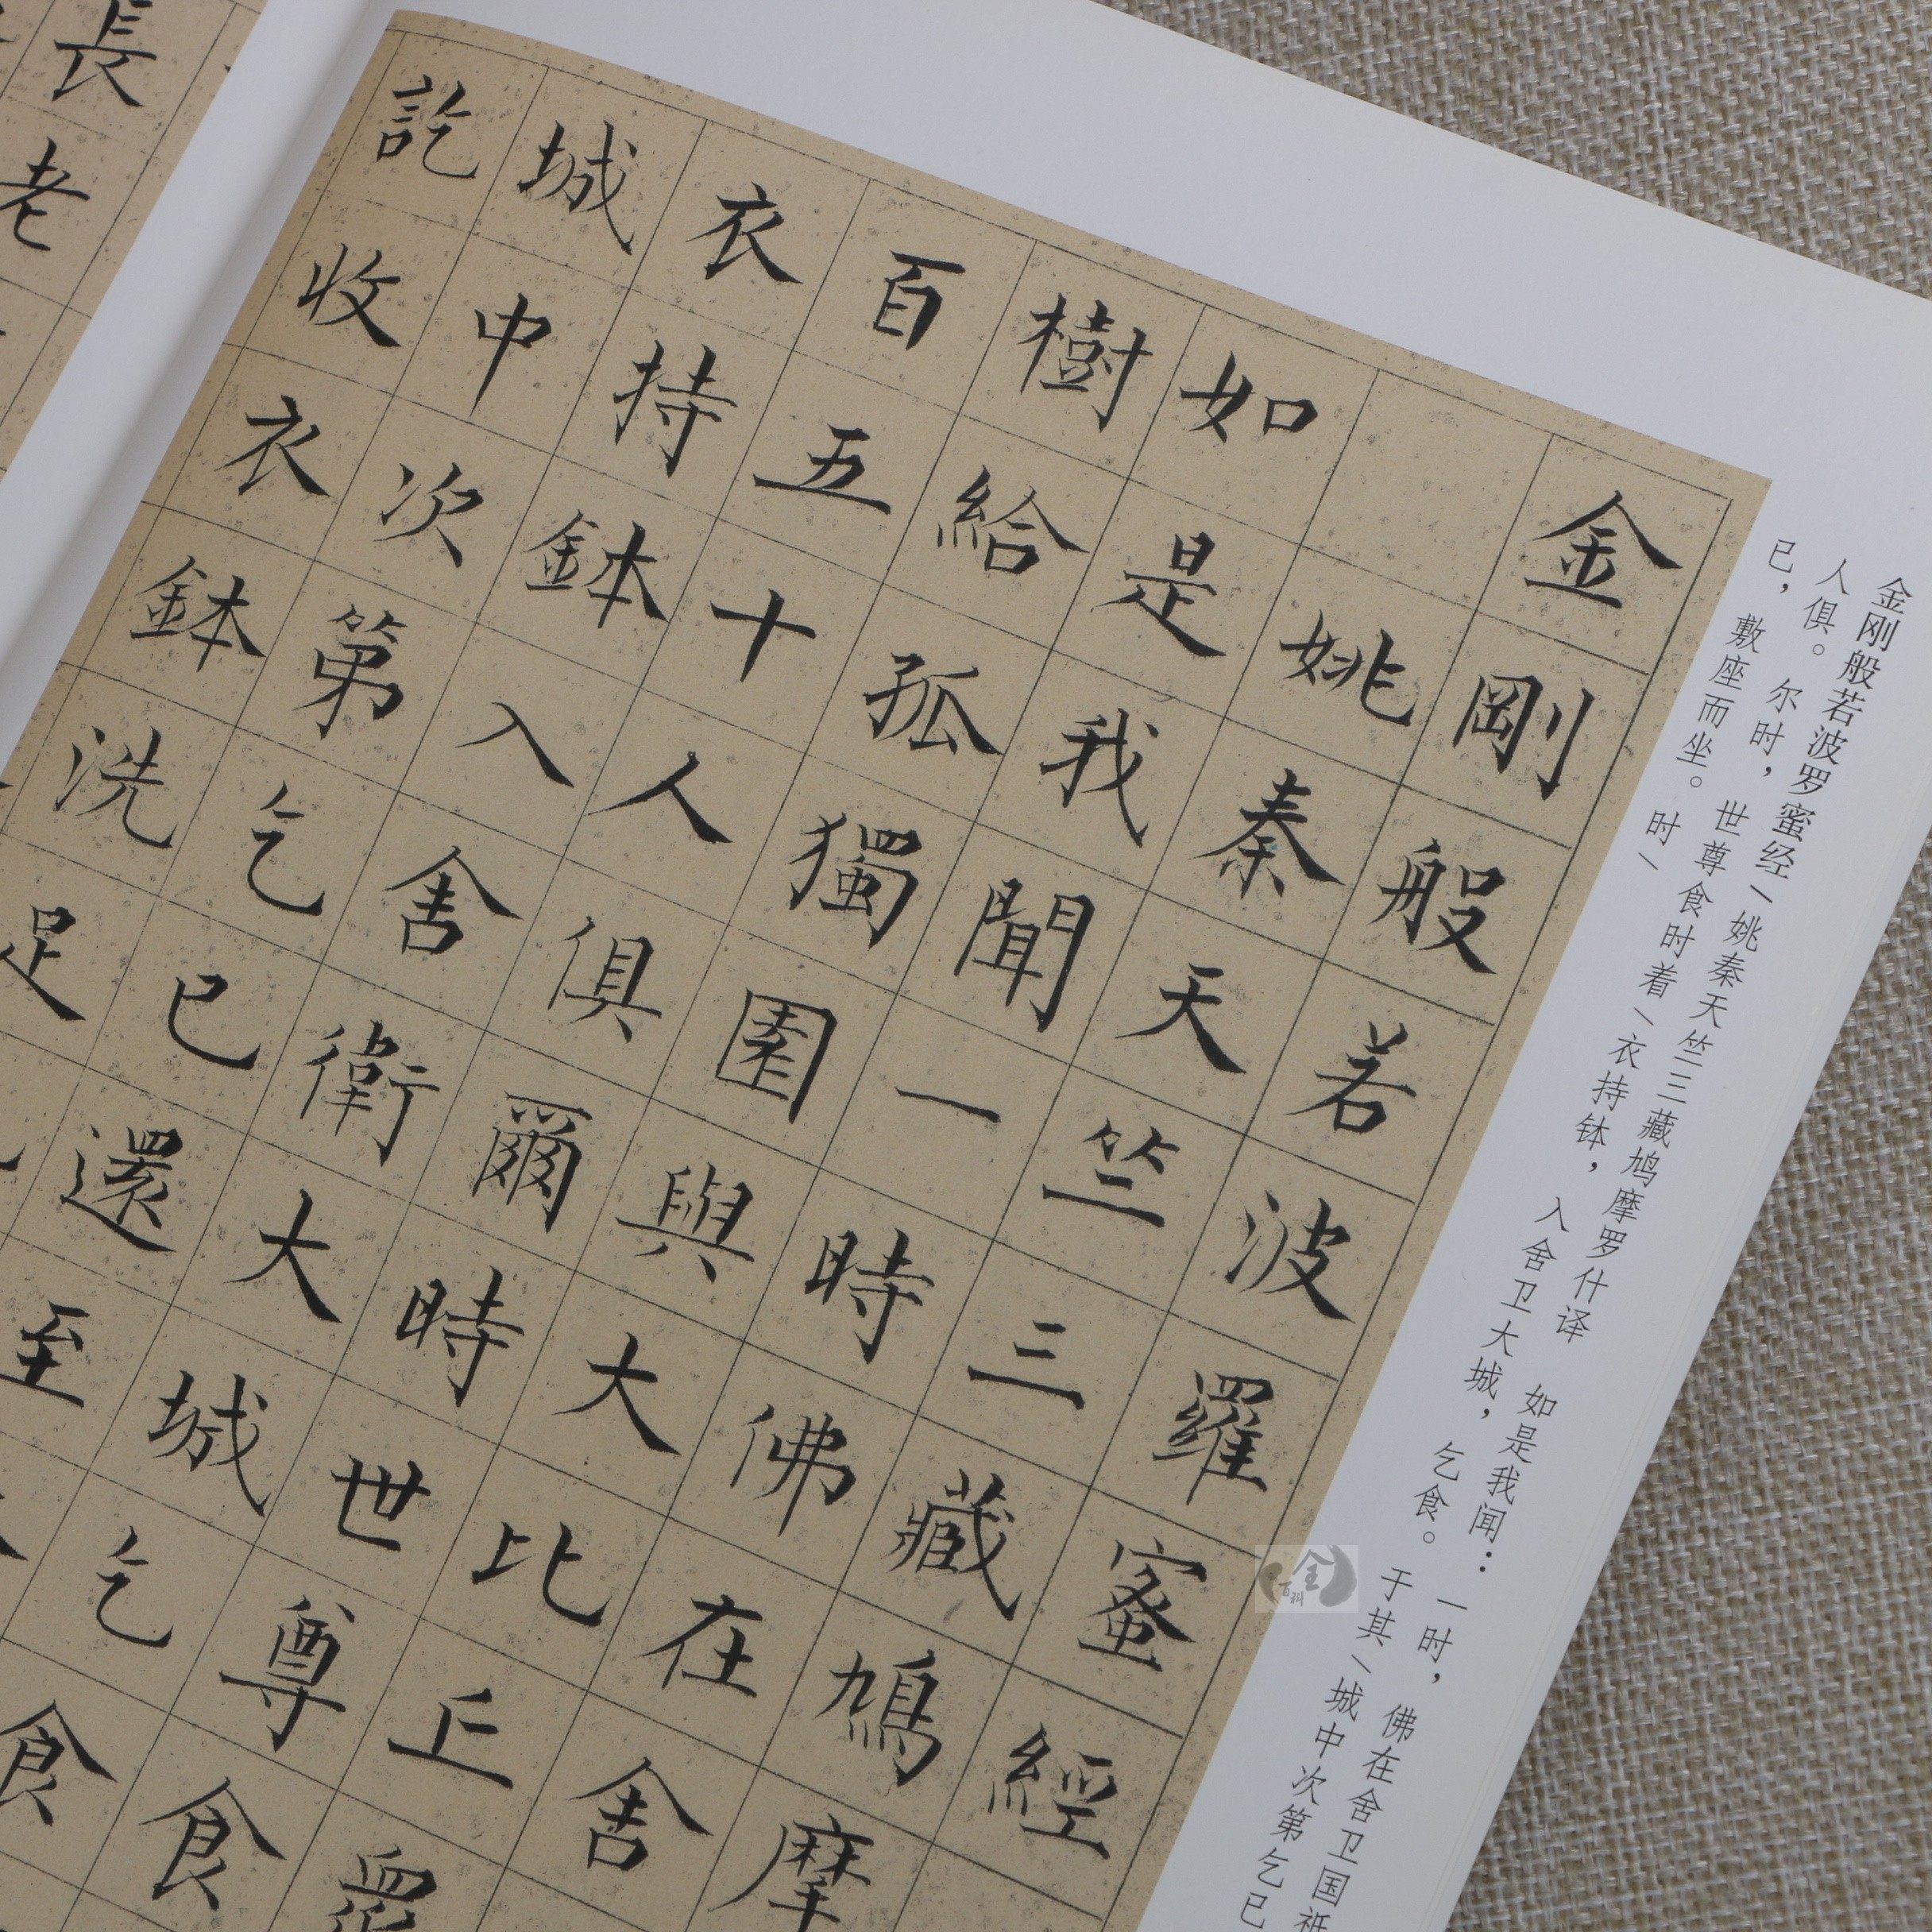 金刚般若波罗蜜经\姚秦天竺三藏鸠摩罗什译 如是我闻：一时，佛在舍卫国祇
人俱。尔时，世尊食时着\衣持钵，入舍卫大城，乞食。于其\城中次第乞已
已，敷座而坐。时\
金剛般若波羅蜜經
姚秦天竺三藏鳩摩
如是我聞一時佛在舍
樹給孤獨園與大比丘眾
百五十人俱爾時世尊食
衣持鉢入舍衛大城乞食
城中次第乞已還至
訖收衣鉢洗足
長老